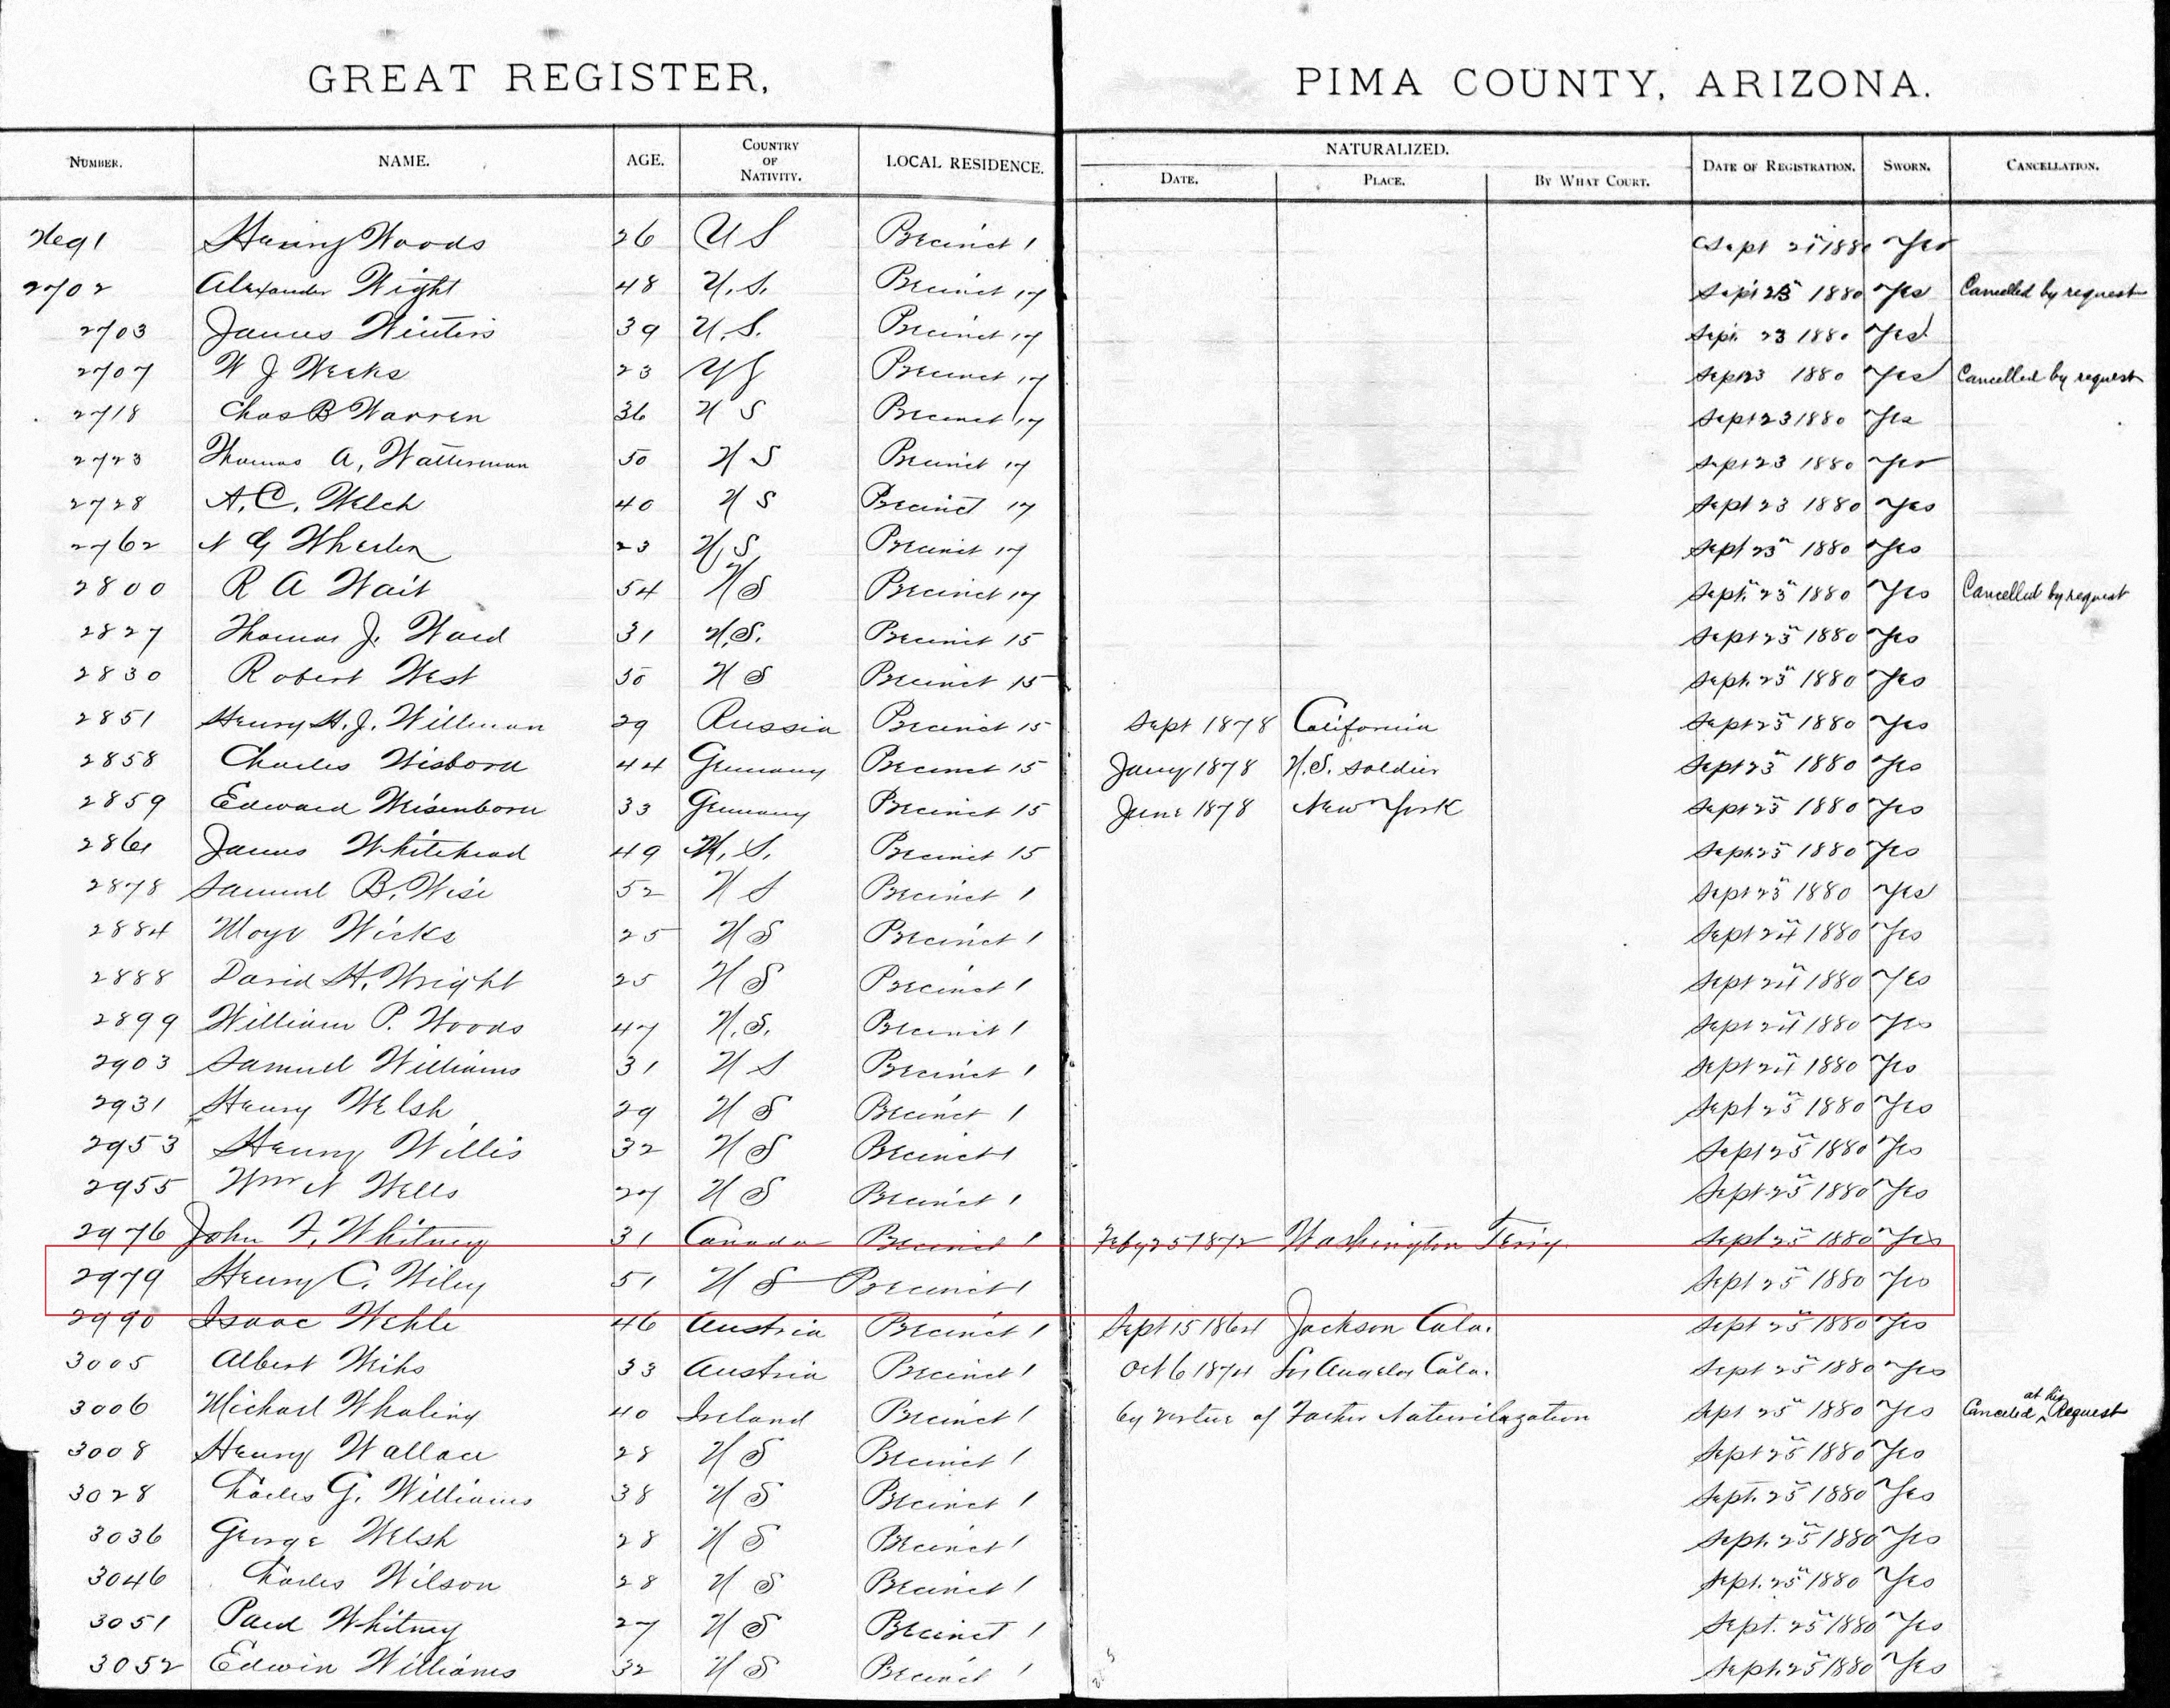 GREAT REGISTER, PIMA COUNTY, ARIZONA.
NUMBER. NAME. AGE. COUNTRY OF NATIVITY. LOCAL RESIDENCE. NATURALIZED. DATE. PLACE. BY WHAT COURT. DATE OF REGISTRATION. SWORN. CANCELLATION.
Henry Woods 26 U S Precinct 1 Sept 21 1880 Yes
2702 Alexander Wight 48 U.S. Precinct 17 Sept 23 1880 Yes Cancelled by request
2703 James Winters 39 U.S. Precinct 17 Sept 23 1880 Yes
2707 W J Weeks 23 U S Precinct 17 Sept 23 1880 Yes Cancelled by request
2718 Chas B Warren 36 U S Precinct 17 Sept 23 1880 Yes
2723 Thomas A, Watterman 50 U S Precinct 17 Sept 23 1880 Yes
2728 A. C. Welch 40 U S Precinct 17 Sept 23 1880 Yes
2762 N G 23 U.S. Precinct 17 Sept 23 1880 Yes
2800 R A Wait 54 U S Precinct 17 Sept. 23 1880 Yes Cancelled by request
2827 Thomas J. Ward 31 U.S. Precinct 15 Sept 23 1880 Yes
2830 Robert West 30 U S Precinct 15 Sept. 23 1880 Yes
2851 Henry H. J. Willman 29 Russia Precinct 15 Sept 1878 California Sept 23 1880 Yes
2858 Charles Wisborn 44 Germany Precinct 15 Jany 1878 U.S. soldier Sept 23 1880 Yes
2859 Edward Weisenborn 33 Germany Precinct 15 June 1878 New York Sept 23 1880 Yes
2861 James Whitehead 49 U.S. Precinct 15 Sept. 23 1880 Yes
2878 Samuel B. Wise 52 U S Precinct 1 Sept 23 1880 Yes
2884 Moye Wicks 25 U S Precinct 1 Sept 24 1880 Yes
2888 David H. Wright 25 U S Precinct 1 Sept 24 1880 Yes
2899 William P. Woods 47 U.S. Precinct 1 Sept 24 1880 Yes
2903 Samuel Williams 31 U S Precinct 1 Sept 24 1880 Yes
2931 Henry Welsh 29 U S Precinct 1 Sept 25 1880 Yes
2953 Henry Willis 32 U S Precinct 1 Sept 25 1880 Yes
2955 Wm N Wells 27 U S Precinct 1 Sept 25 1880 Yes
2976 John F. Whitney 31 Canada Precinct 1 Feby 25 1872 Washington Terry. Sept 25 1880 Yes
2979 Henry C. Wiley 51 U S Precinct 1 Sept 25 1880 Yes
2990 Isaac Wehle 46 Austria Precinct 1 Sept 15 1864 Jackson Cala. Sept 25 1880 Yes
3005 Albert Weihs 33 Austria Precinct 1 Oct 6 1874 Los Angeles Cala. Sept 25 1880 Yes
3006 Michael Whaling 40 Ireland Precinct 1 by vertue of Father Naturilazation Sept 25 1880 Yes Canceled at his Request
3008 Henry Wallace 28 U S Precinct 1 Sept 25 1880 Yes
3028 Charles G. Williams 38 U S Precinct 1 Sept. 25 1880 Yes
3036 George Welsh 28 U S Precinct 1 Sept. 25 1880 Yes
3046 Charles Wilson 28 U S Precinct 1 Sept. 25 1880 Yes
3051 Paul Whitney 27 U S Precinct 1 Sept. 25 1880 Yes
3052 Edwin Williams 32 U S Precinct 1 Sept. 25 1880 Yes